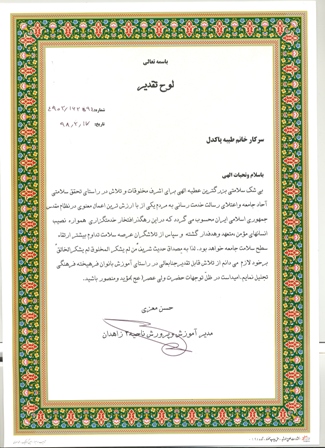 باسمه تعالی
لوح تقدیر
شماره:
تاریخ: ۹۸,۷,۱۷
سرکار خانم طیبه پاکدل
باسلام وتحیات الهی
بی شک سلامتی بزرگترین عطیه الهی برای اشرف مخلوقات و تلاش در راستای تحقق سلامتی
آحاد جامعه و اعتلای رسالت خدمت رسانی به مردم یکی از با ارزش ترین اعمال معنوی درنظام مقدس
جمهوری اسلامی ایران محسوب می گردد که در این رهگذر افتخار خدمتگزاری همواره نصیب
انسانهای مؤمن،متعهد وهدفدار گشته و سپاس از تلاشگران عرصه سلامت تداوم بیشتر ارتقاء
سطح سلامت جامعه خواهد بود. لذا به مصداق حدیث شریف من لم یشکر المخلوق لم یشکرالخالق
برخود لازم می دانم از تلاش قابل تقدیرجنابعالی در راستای آموزش بانوان فرهیخته فرهنگی
تجلیل نمایم.امیداست در ظل توجهات حضرت ولی عصر(عج) مؤید ومنصور باشید.
حسن معزی
مدیر آموزش و پرورش ناحیه ۲ زاهدان